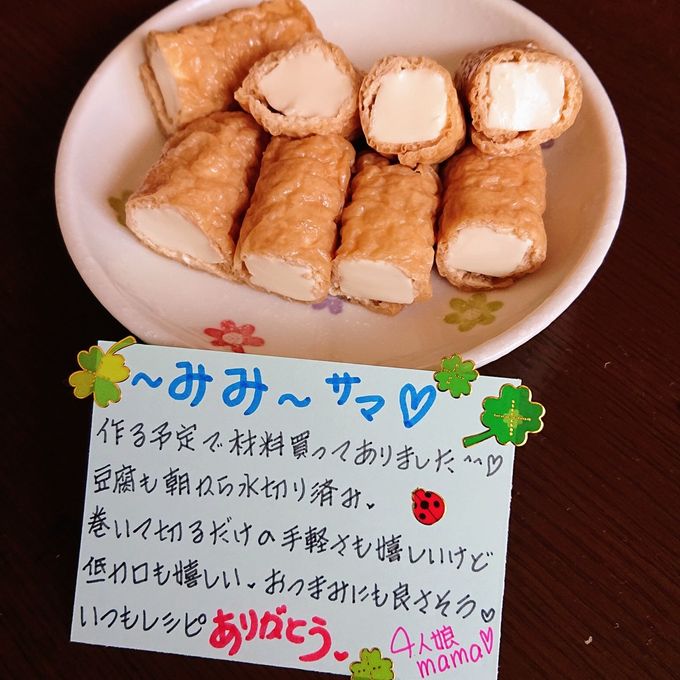 ～みみ～サマ♡
作る予定で材料買ってありました^^♡
豆腐も朝から水切り済み。
巻いて切るだけの手軽さも嬉しいけど
低カロも嬉しい。おつまみにも良さそう♡
いつもレシピありがとう。
4人娘
mama♡